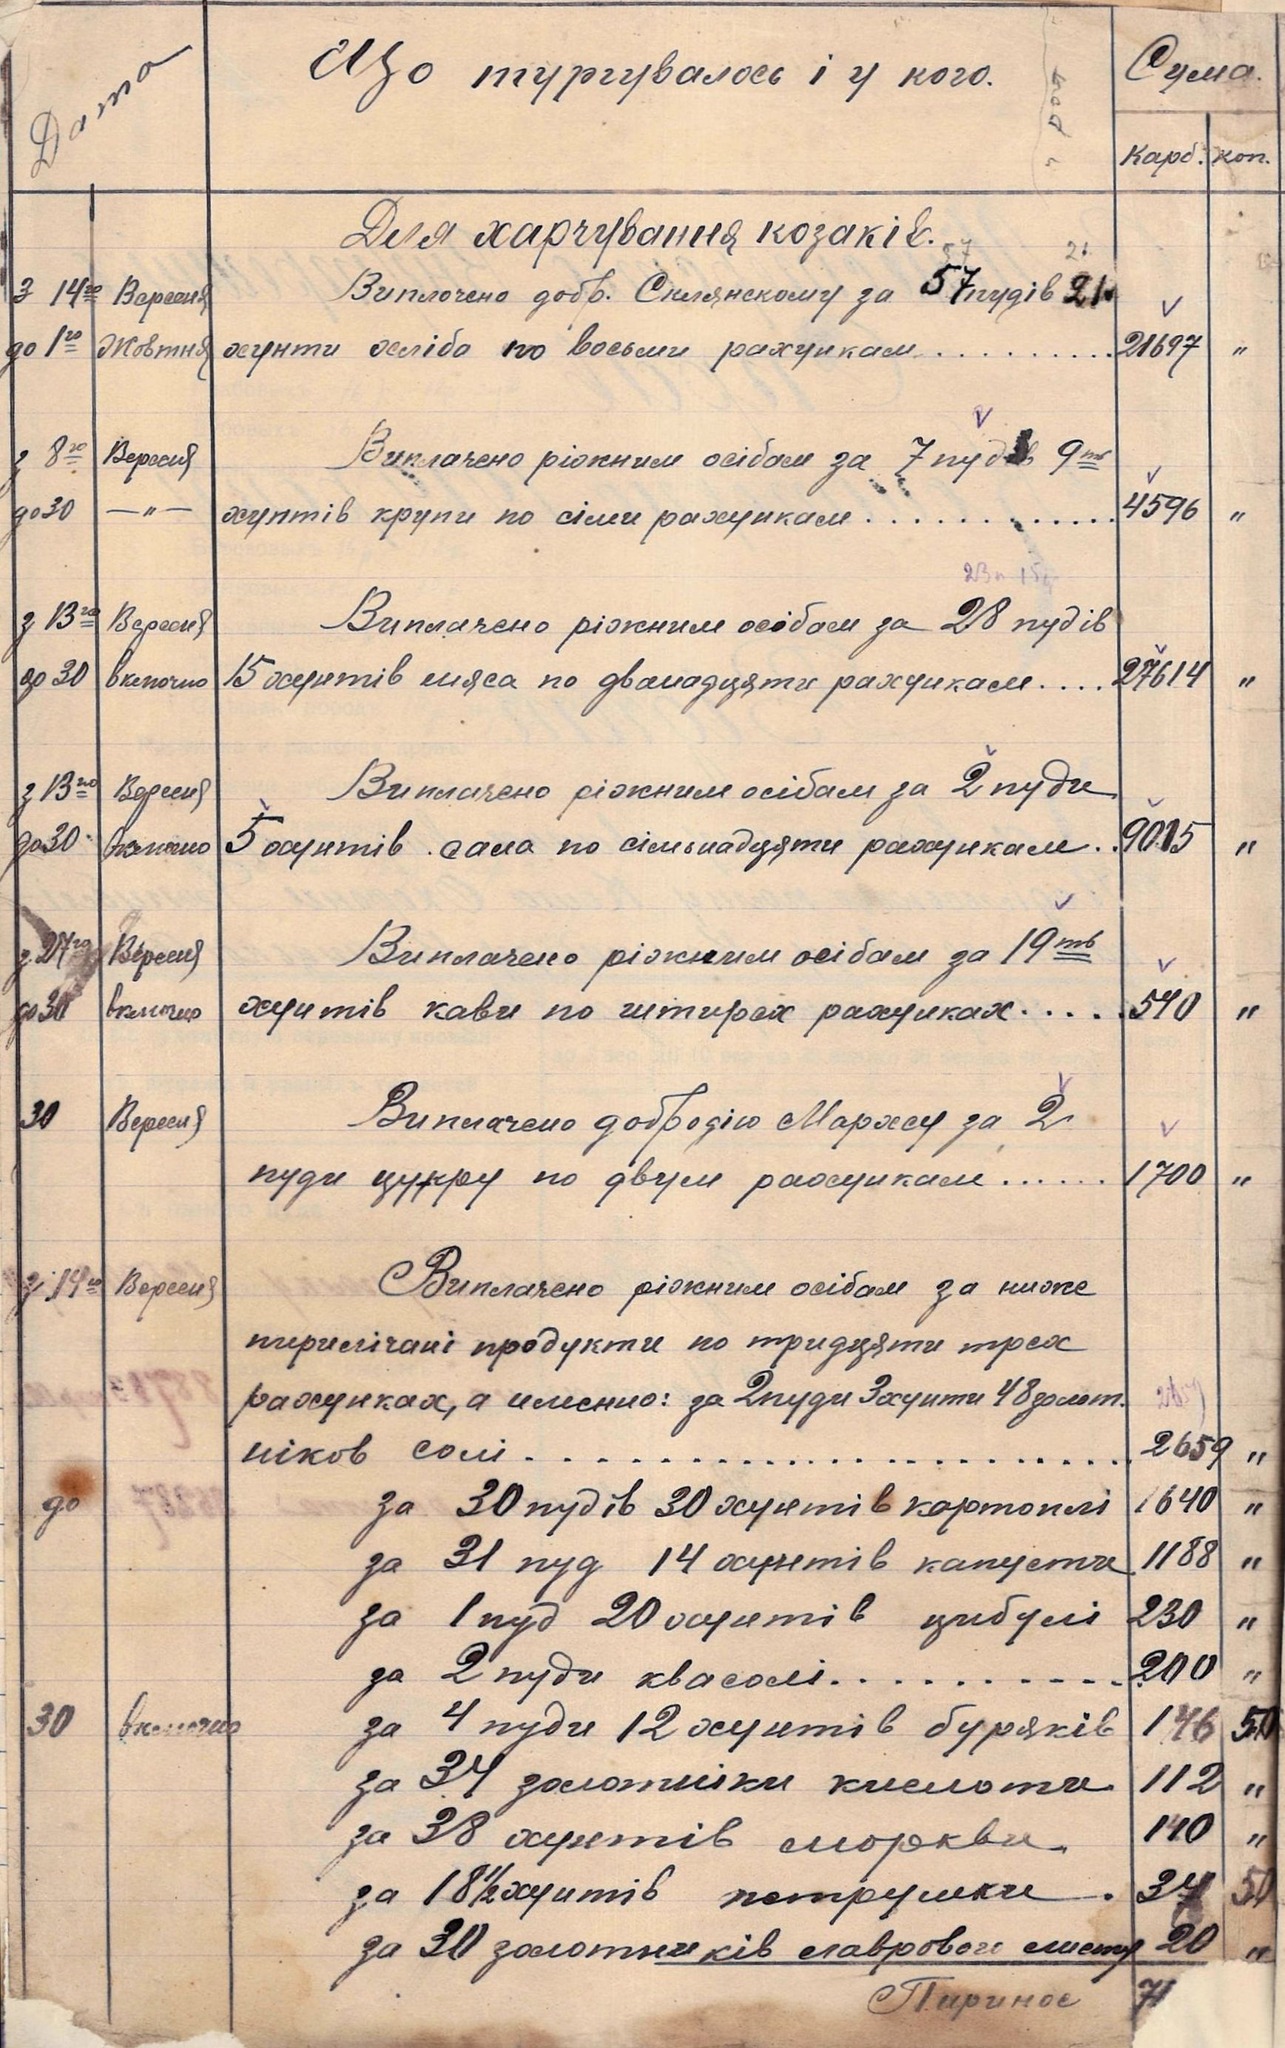 Дата Що тургувалось і у кого. Сума.
Карб. коп.
Для харчування козаків.
57 21
З 14го Вересня Виплочено добр. Склянскому за 57 пудів 21
до 1го Жовтня хунти хліба по восьми рахункам.......... 21697 "
з 8го Вересня Виплачено ріжним осібам за 7 пудів 9ть
до 30 —"— хунтів крупи по сіми рахункам............. 4596 "
23п 15
з 13го Вересня Виплачено ріжним осібам за 28 пудів
до 30 включно 15 хунтів мяса по дванадцяти рахункам.... 27614 "
з 13го Вересня Виплачено ріжним осібам за 2 пуди
до 30 включно 5 хунтів сала по сімьнадцяти рахункам.. 9015 "
з 27го Вересня Виплачено ріжним осібам за 19ть
до 30 включно хунтів кави по читирех рахунках..... 540 "
30 Вересня Виплачено добродію Мархсу за 2
пуди цукру по двум рахункам...... 1700 "
зі 14го Вересня Виплачено ріжним осібам за ниже
перилічані продукти по тридцяти трех
рахунках, а именно: за 2 пуди 3 хунти 48 золот.
ніков солі............................. 2659 "
до за 30 пудів 30 хунтів картоплі 1640 "
за 31 пуд 14 хунтів капусти 1188 "
за 1 пуд 20 хунтів цибулі 230 "
за 2 пуди квасолі........... 200 "
30 включно за 4 пуди 12 хунтів буряків 146 50
за 34 золотніки кислоти 112 "
за 38 хунтів моркви 140 "
за 18 1/2 хунтів петрушки . 37 50
за 30 золотників лаврового листу 20 "
Перинос 71